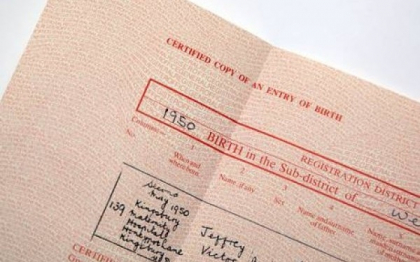 CERTIFIED COPY OF AN ENTRY OF BIRTH
REGISTRATION DISTRICT
1950 BIRTH in the Sub-district of We
Columns:— 1 2 3 4
No. When and where born Name, if any Sex Name and surname of father Name,
139 May 1950
Kingsbury
Maternity
Hospital
Honeypot Lane
Kingsbury
Jeffrey
Victor
CERTIFIED